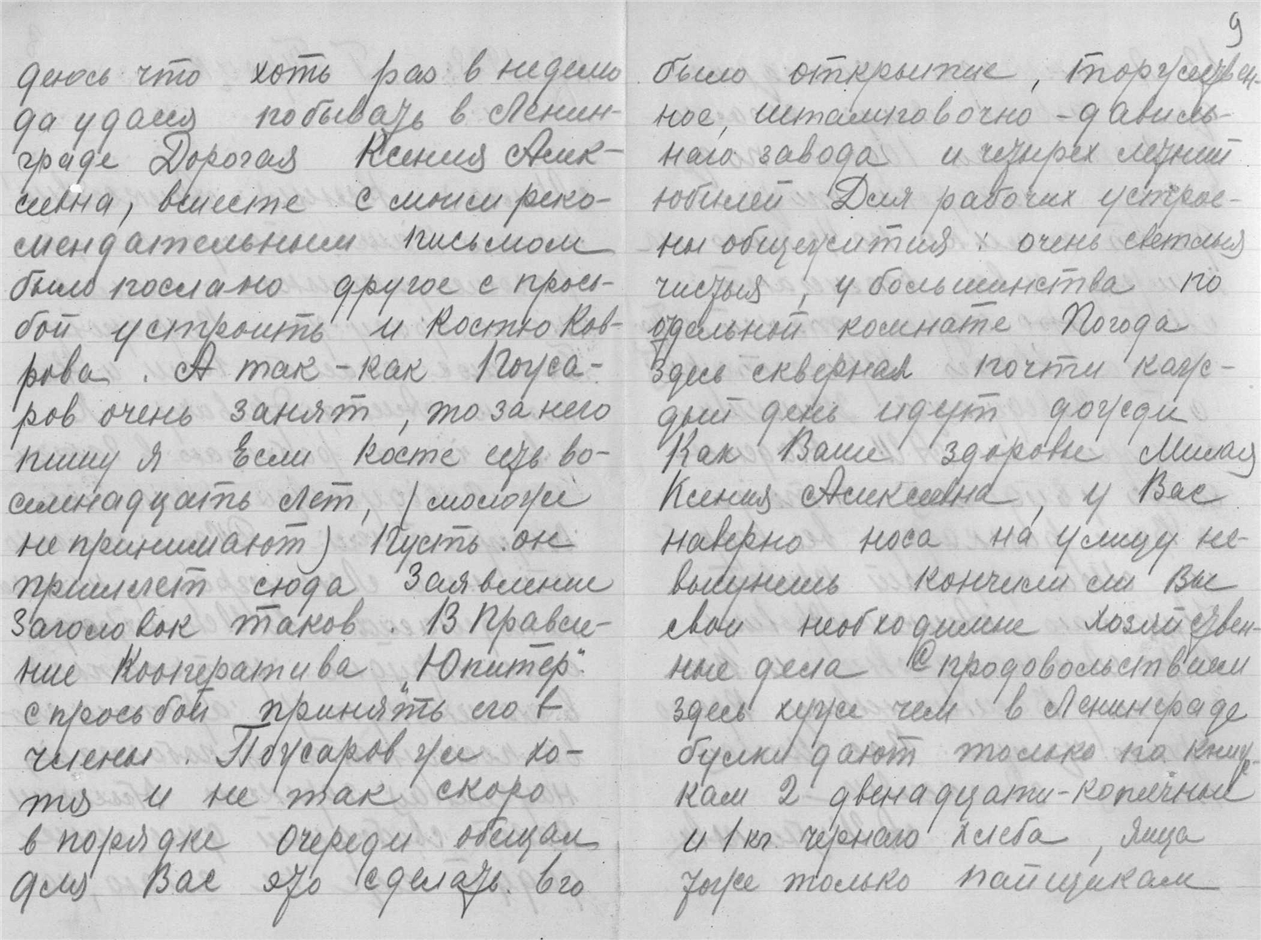 деюсь что хоть раз в неделю
да удася побывать в Ленин-
граде Дорогая Ксения Алек-
севна, вместе с моим реко-
мендательным письмом
было послано другое с прось-
бой устроить и Костю Ков-
рова. А так-как Поуса-
ров очень занят, то за него
пишу я Если Косте есть во-
семнадцать лет, (моложе
не принимают) Пусть он
пришлет сюда Заявление
Заголовок таков. В Правле-
ние Кооператива "Юпитер".
с просьбой принять его в
члены. Поусаров же хо-
тя и не так скоро
в порядке очереди обещал
для Вас это сделать. вго
9
было открытие, торжествен-
ное, штамповочно-давиль-
наго завода и четырех летний
юбилей Для рабочих устрое-
ны общежития х очень светлыя
чистыя, у большинства по
отдельной комнате Погода
здесь скверная почти каж-
дый день идут дожди
Как Ваше здоровье Милая
Ксения Алексевна, у Вас
наверно носа на улицу не-
вытунешь Кончили ли Вы
свои необходимые хозяйствен-
ные дела С продовольствием
здесь хуже чем в Ленинграде
булки дают только по книж-
кам 2 двенадцати-копеечные
и 1 кг чернаго хлеба, яица
тоже только пайщикам